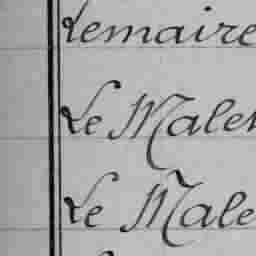 Lemaire
Le Malet
Le Male